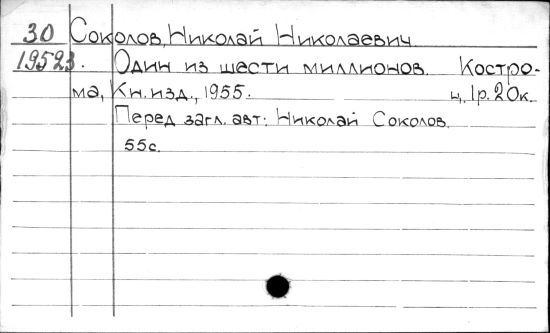 30 Соколов, Николай Николаевич.
19523. Один из шести миллионов. Костро-
ма, Кн. изд., 1955. ц. 1р. 20к.
Перед загл. авт: Николай Соколов.
55с.